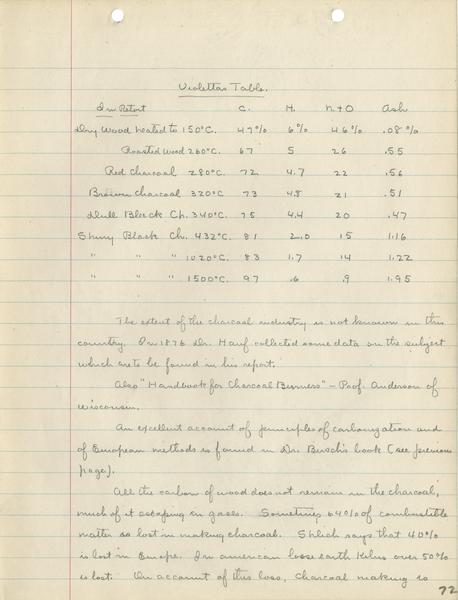 Violettas Table.
In Retort C. H. N+O Ash
Dry Wood heated to 150°C. 47% 6% 46% .08%
Roasted Wood 260°C. 67 5 26 .55
Red Charcoal 280°C. 72 4.7 22 .56
Brown Charcoal 320°C 73 4.8 21 .51
Dull Black Ch. 340°C. 75 4.4 20 .47
Shiny Black Ch. 432°C. 81 2.0 15 1.16
" " " 1020°C. 83 1.7 14 1.22
" " " 1500°C. 97 .6 .9 1.95
The extent of the charcoal industry is not known in this
country. In 1876 Dr. Hauf collected some data on the subject
which are to be found in his report.
Also "Handbook for Charcoal Burners" - Prof. Anderson of
Wisconsin.
An excellent account of principles of carbonization and
of European methods is found in Dr. Busch's book (see previous
page).
All the carbon of wood does not remain in the charcoal,
much of it escaping in gases. Sometimes 64% of combustible
matter is lost in making charcoal. Shlich says that 40%
is lost in Europe. In american loose earth Kilns over 50%
is lost. On account of this loss, charcoal making is
72